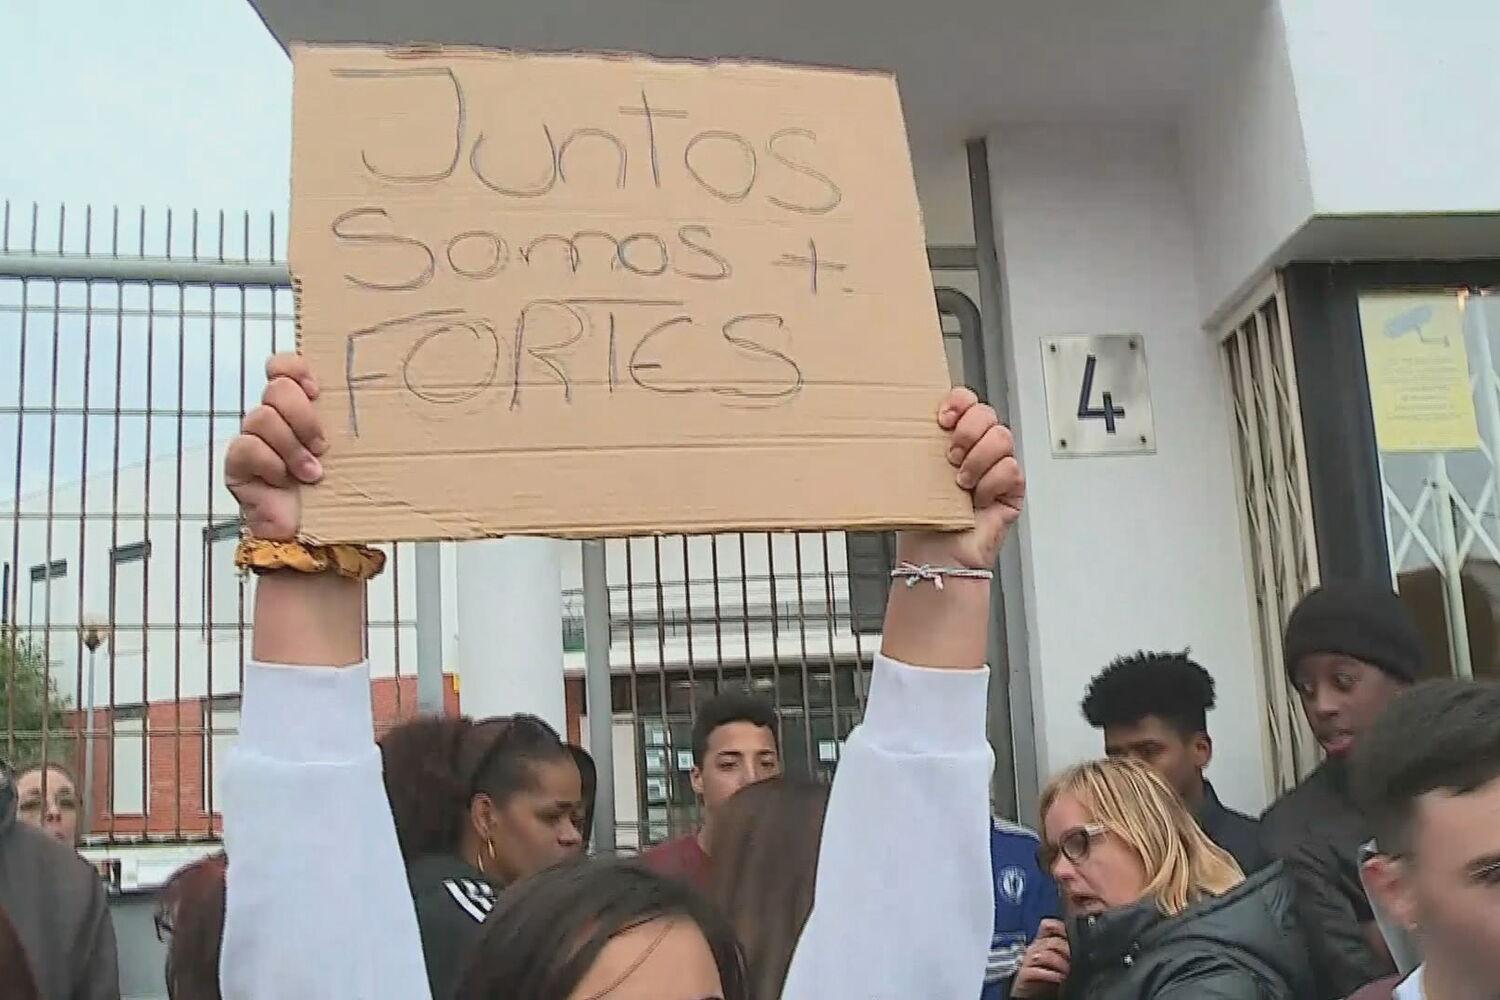 Juntos
Somos +.
FORTES
4